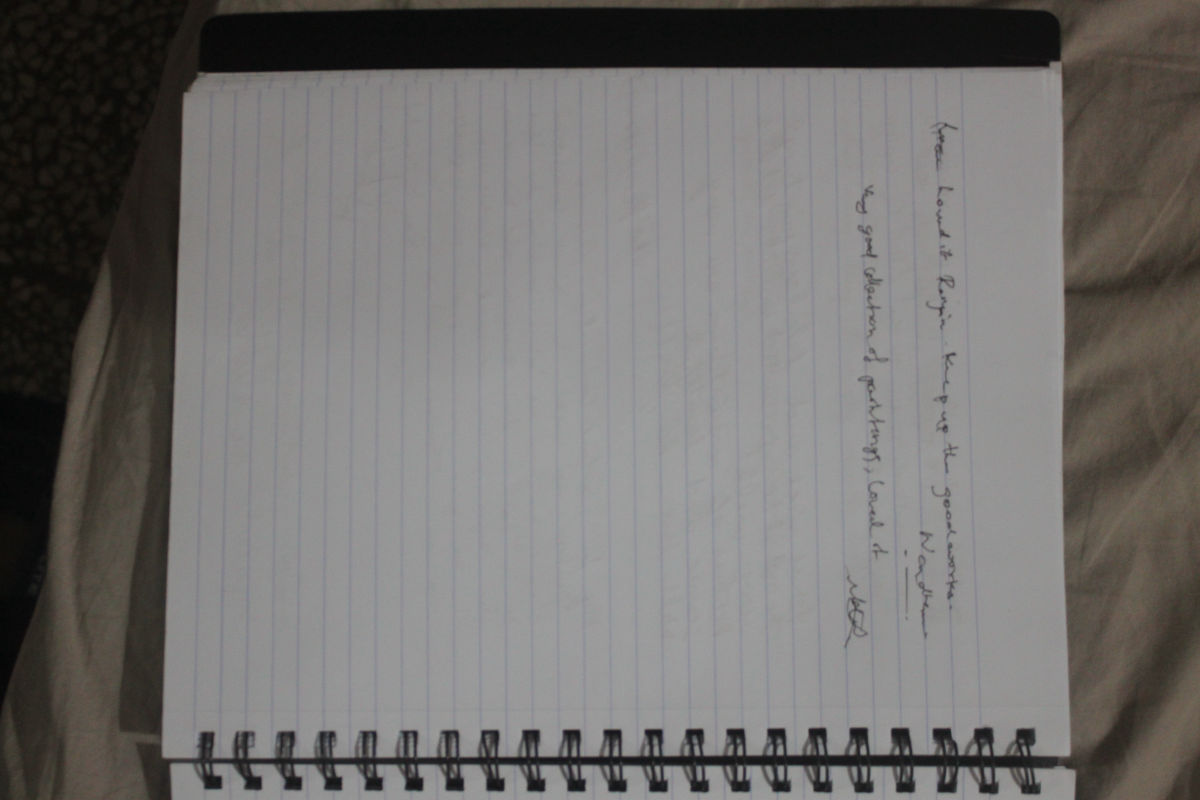 loved it Ranjin. Keep up the good works.
Very good collection of paintings, loved it